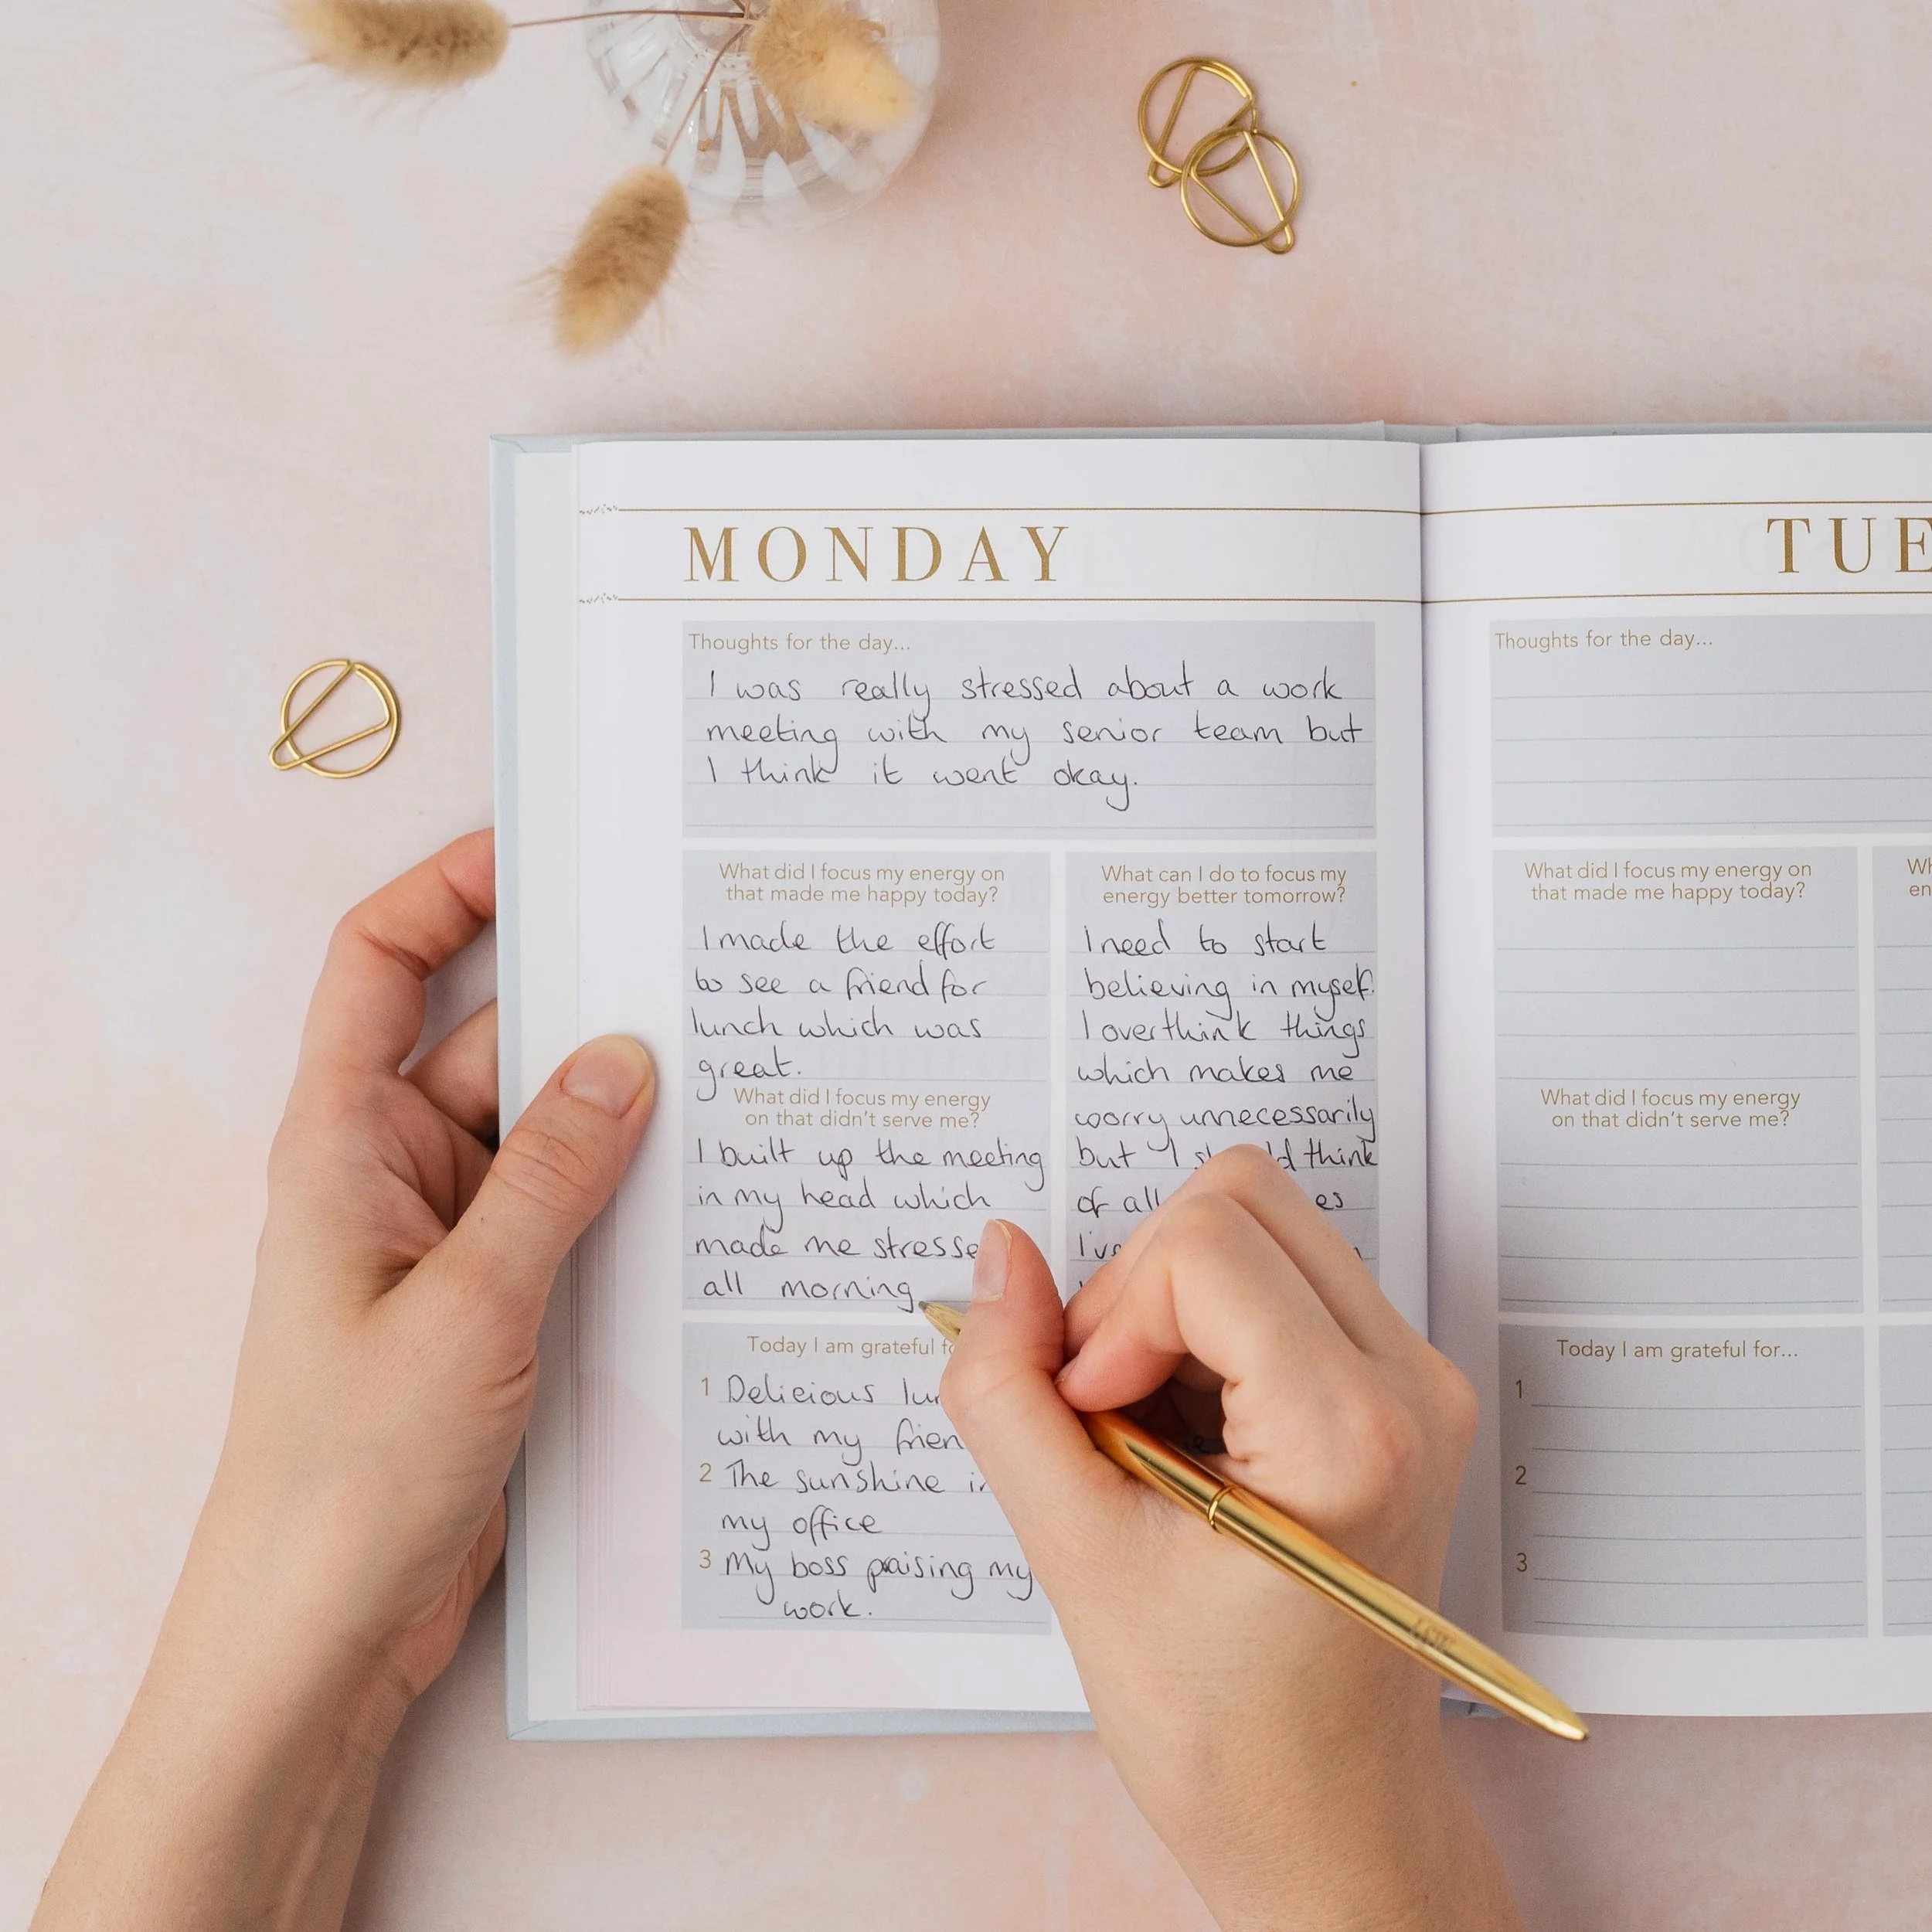 MONDAY
Thoughts for the day...
I was really stressed about a work
meeting with my senior team but
I think it went okay.
What did I focus my energy on
that made me happy today?
I made the effort
to see a friend for
lunch which was
great.
What did I focus my energy
on that didn't serve me?
I built up the meeting
in my head which
made me
all morning
What can I do to focus my
energy better tomorrow?
I need to start
believing in myself.
I overthink things
which makes me
worry unnecessarily
but I think
of all
Today I am grateful
1 Delicious
with my
2 The sunshine
my office
3 My boss praising my
work.
TUE
Thoughts for the day...
What did I focus my energy on
that made me happy today?
What did I focus my energy
on that didn't serve me?
Today I am grateful for...
1
2
3